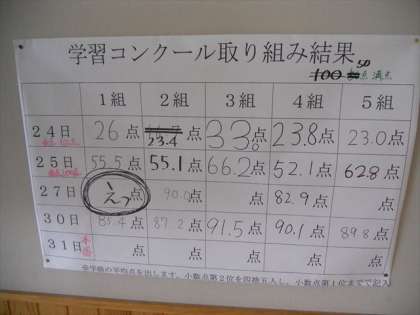 学習コンクール取り組み結果
100 50点満点
1組 2組 3組 4組 5組
24日 26点 23.4点 33点 23.8点 23.0点
25日 55.5点 55.1点 66.2点 52.1点 62.8点
27日 点 90.0点 点 82.9点 点
30日 85.4点 87.2点 91.5点 90.1点 89.8点
31日 点 点 点 点 点
※学級の平均点を出します。小数点第2位を四捨五入し、小数点第1位までで記入